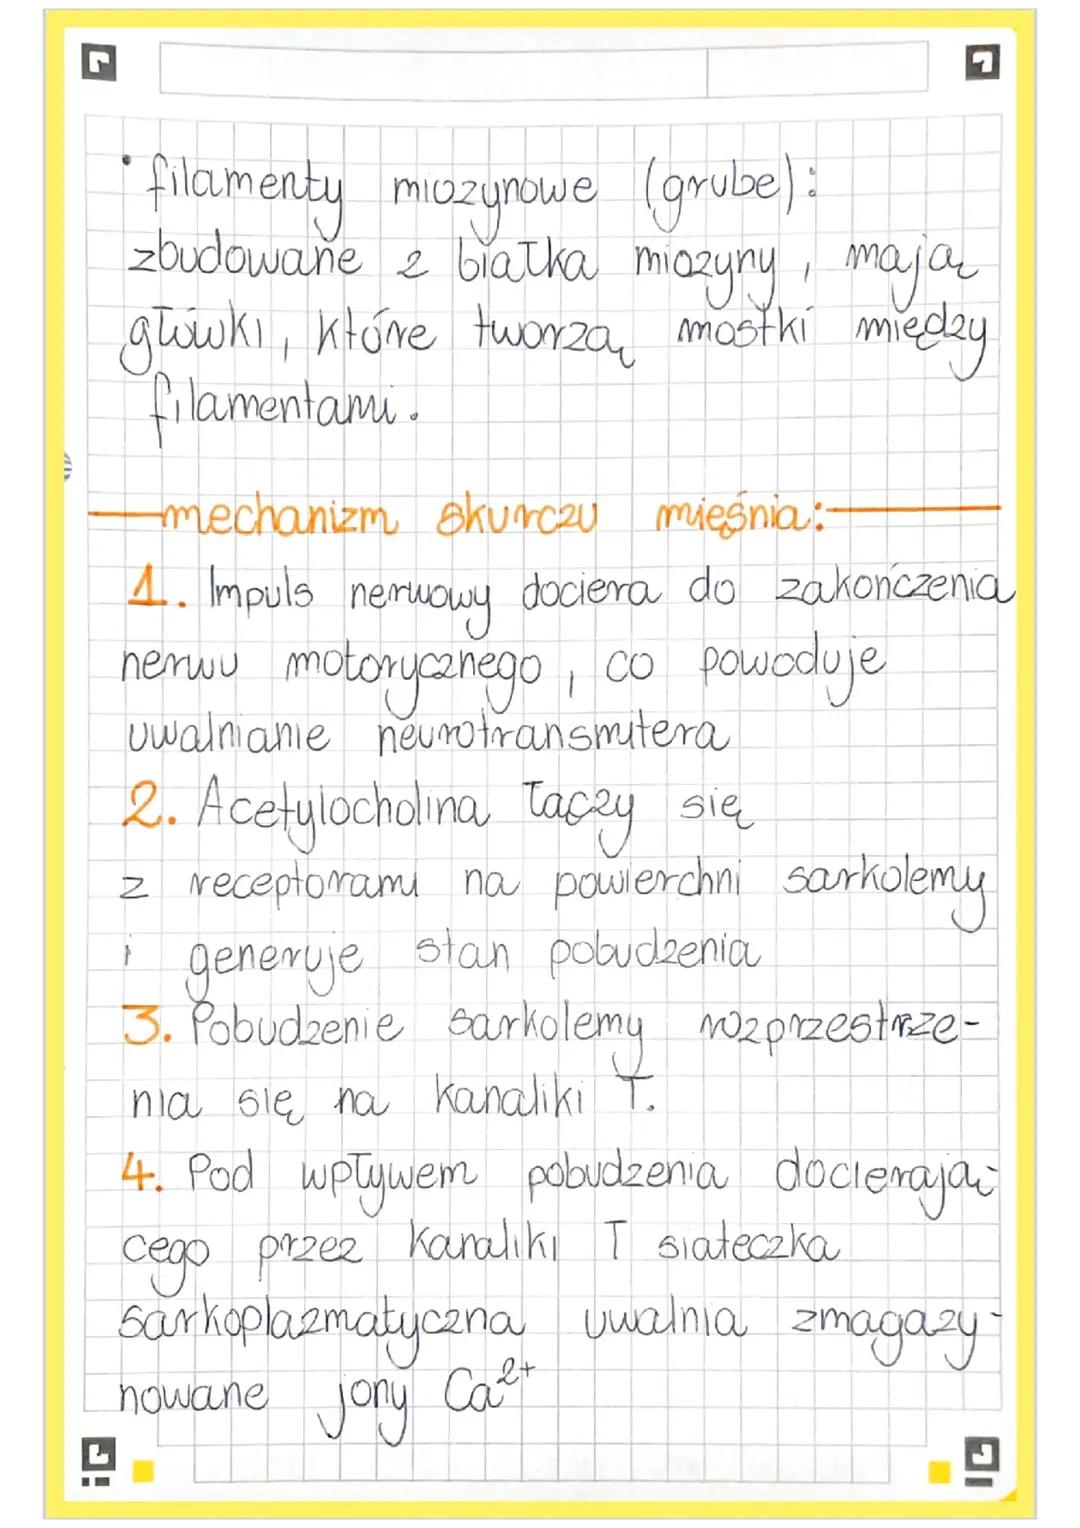 • filamenty miozynowe (grube):
zbudowane z białka miozyny, mają
główki, które tworzą mostki między
filamentami.
mechanizm skurczu mięśnia:
1. Impuls nerwowy dociera do zakończenia
nerwu motorycznego, co powoduje
uwalnianie neurotransmitera
2. Acetylocholina łączy się
z receptorami na powierchni sarkolemy
i generuje stan pobudzenia
3. Pobudzenie sarkolemy rozprzestrze-
nia się na kanaliki T.
4. Pod wpływem pobudzenia docierają-
cego przez kanaliki T siateczka
sarkoplazmatyczna uwalnia zmagazy-
nowane jony Ca²⁺